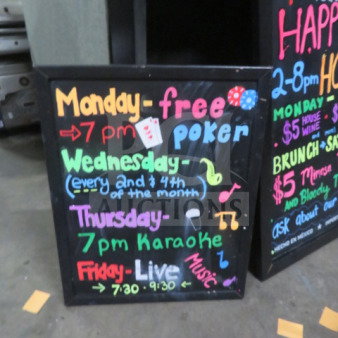 Monday - free
→ 7 pm poker
Wednesday -
(every 2nd & 4th
of the month)
Thursday -
7pm Karaoke
Friday - Live
Music
→ 7:30 - 9:30 ←
HAPP
2-8pm HO
MONDAY -
$5 HOUSE
WINE
BRUNCH SA
$5 Mimosa
AND Bloody
ask about our
HECHO EN MÉXICO
AUCTIONS